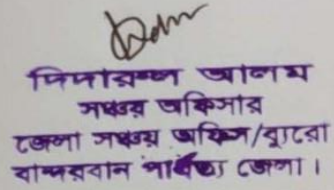 দিদারুল আলম
সঞ্চয় অফিসার
জেলা সঞ্চয় অফিস/ব্যুরো
বান্দরবান পার্বত্য জেলা।